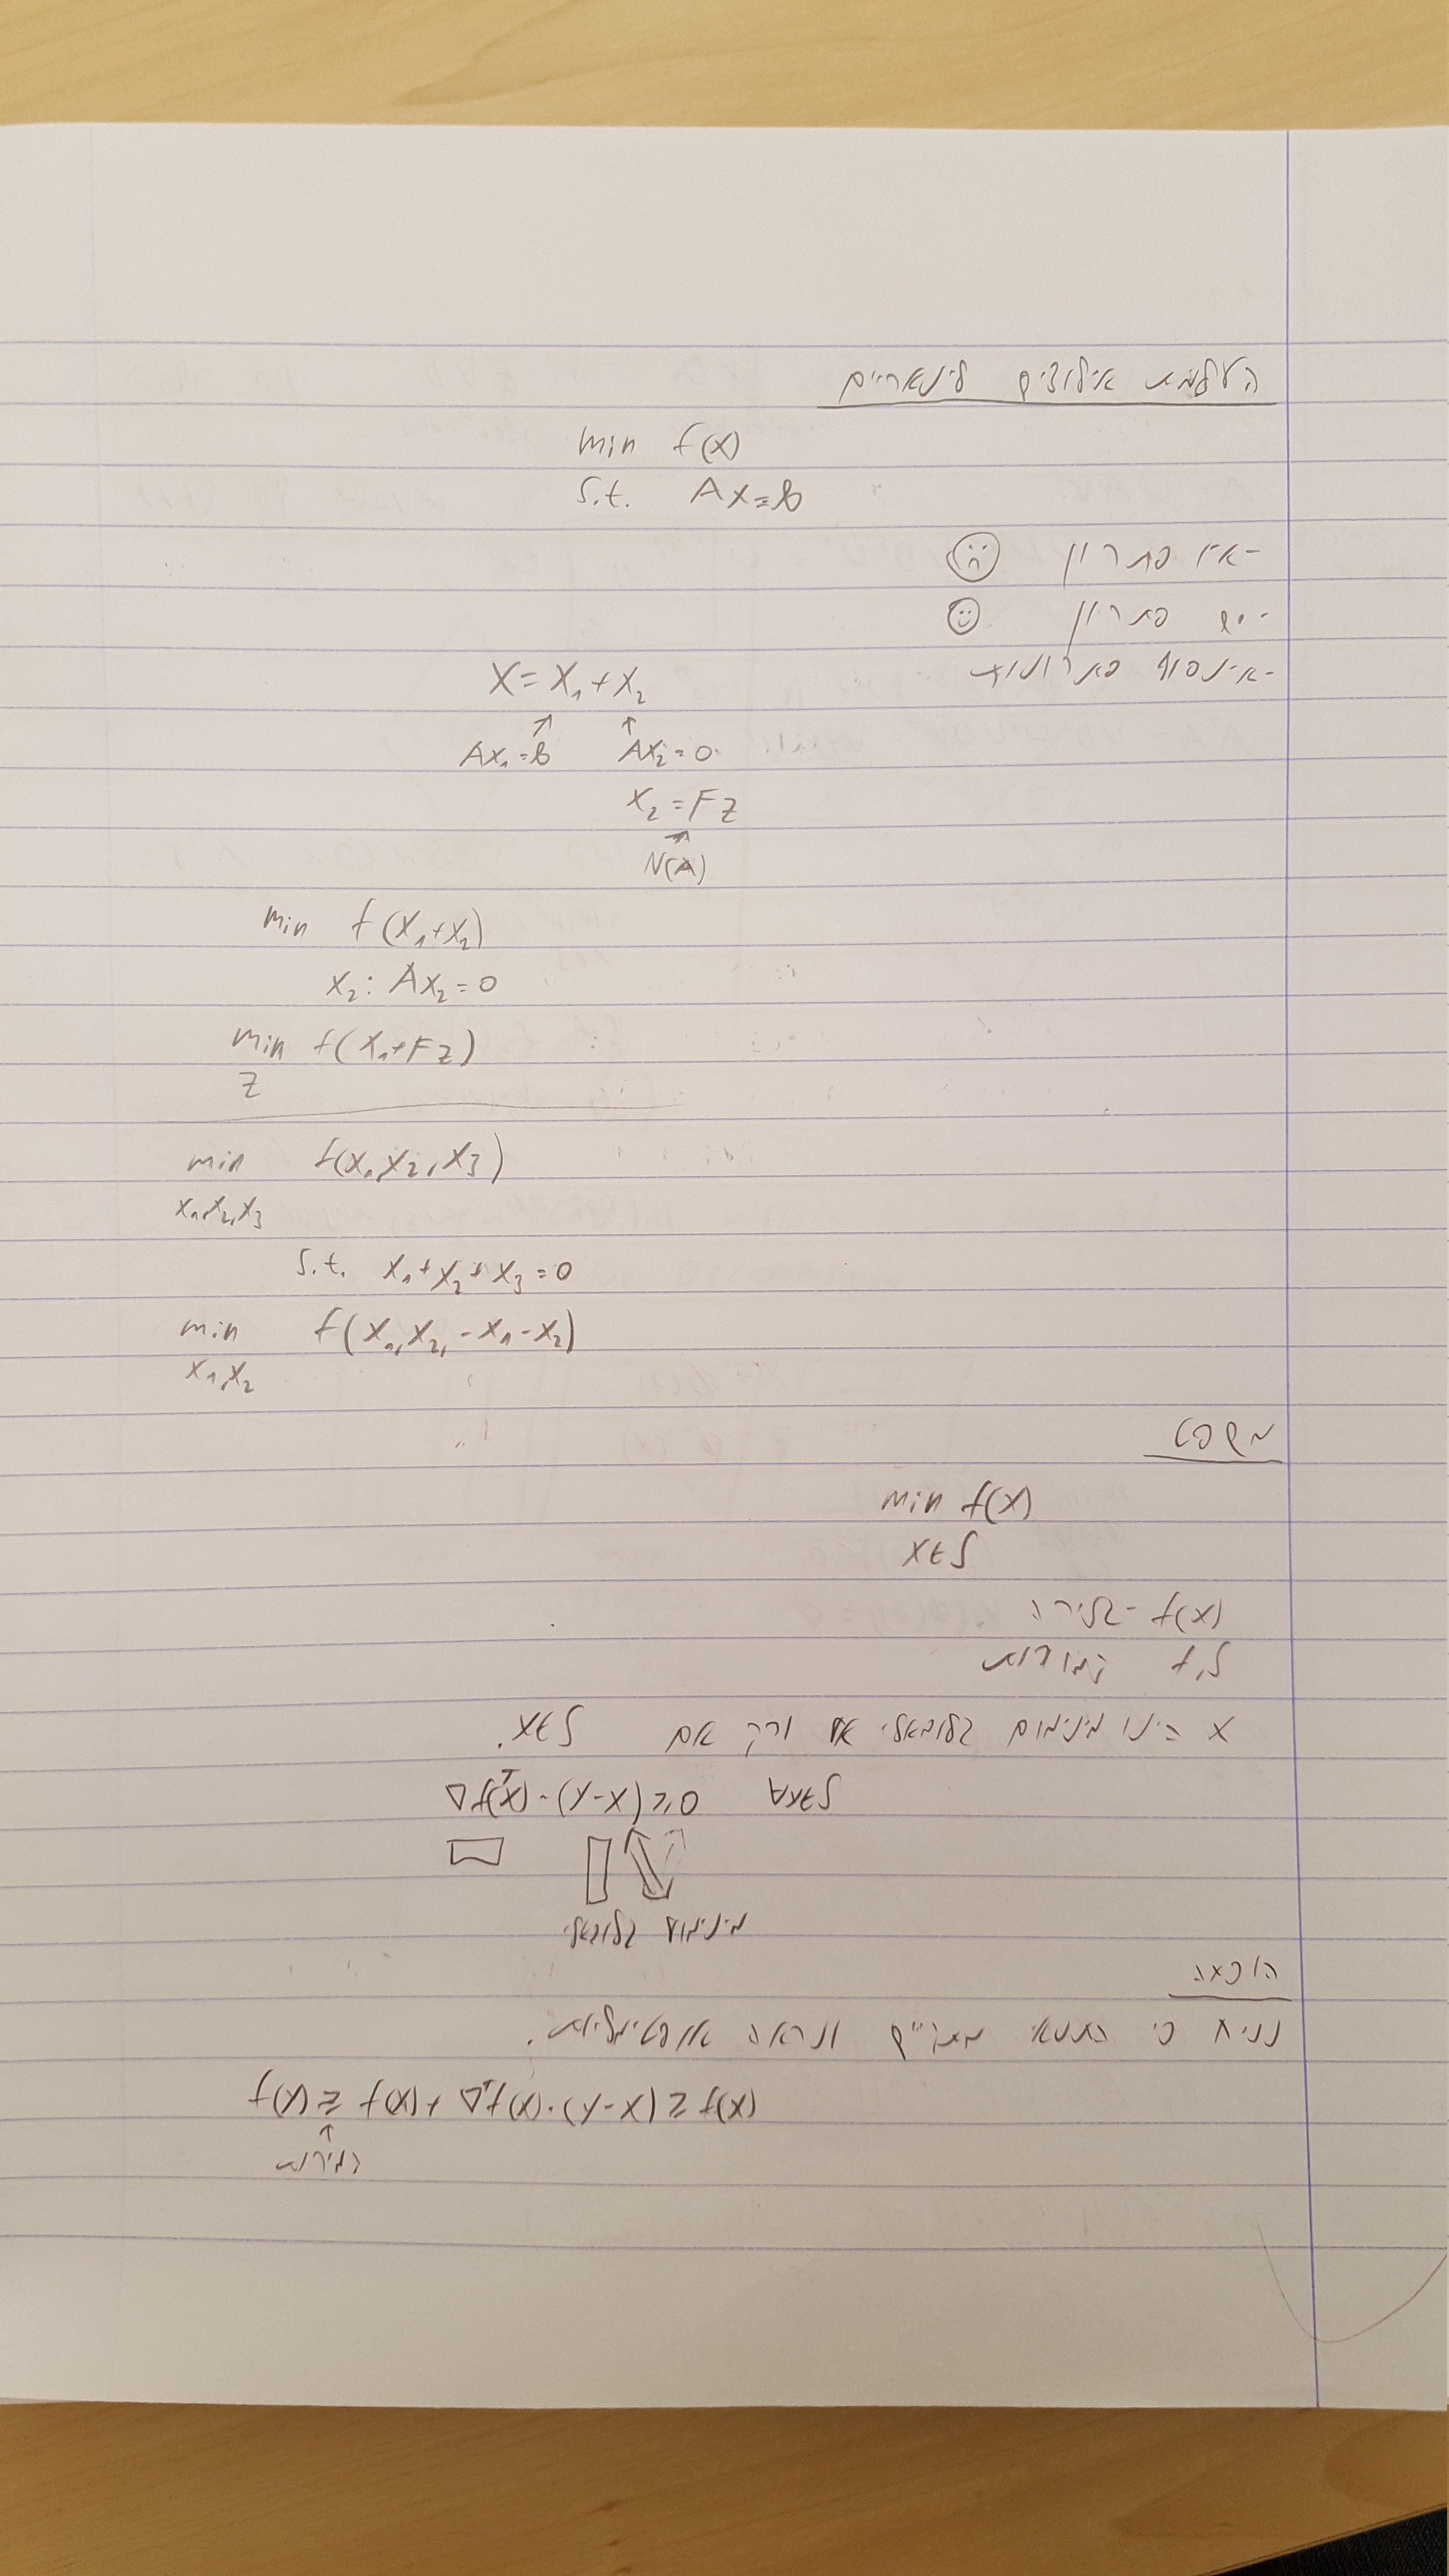 העלמת אילוצים לינאריים
min f(x)
s.t. Ax=b
-אין פתרון
-יש פתרון
-אינסוף פתרונות
X = X₁ + X₂
↗ ↑
Ax₁=b Ax₂=0
x₂ = Fz
↗
N(A)
min f(x₁+x₂)
x₂: Ax₂=0
min f(x₁+Fz)
z
min f(x₁,x₂,x₃)
x₁,x₂,x₃
s.t. x₁+x₂+x₃=0
min f(x₁,x₂,-x₁-x₂)
x₁,x₂
משפט
min f(x)
x∈S
f(x) - גזירה
S,f קמורות
x הינו מינימום גלובאלי אם ורק אם x∈S.
∇f(x)ᵀ·(y-x)≥0 ∀y∈S
מינימום גלובאלי
הוכחה
נניח כי התנאי מתקיים ונראה אופטימליות.
f(y) ≥ f(x) + ∇ᵀf(x)·(y-x) ≥ f(x)
↑
קמירות